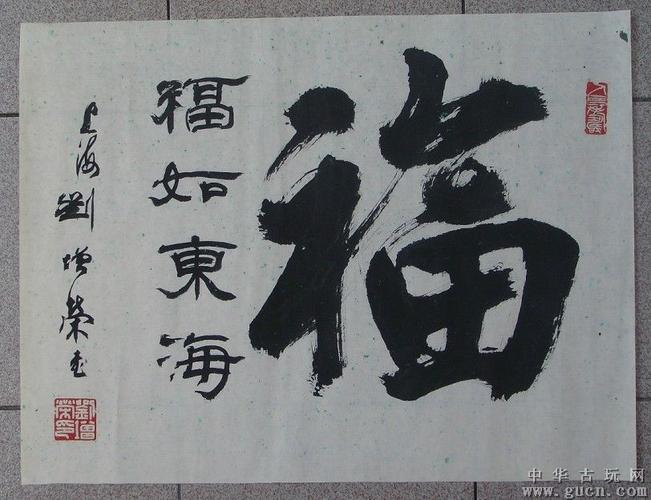 福
福如東海
上海劉增榮書
劉增
榮印
中华古玩网
www.gucn.com